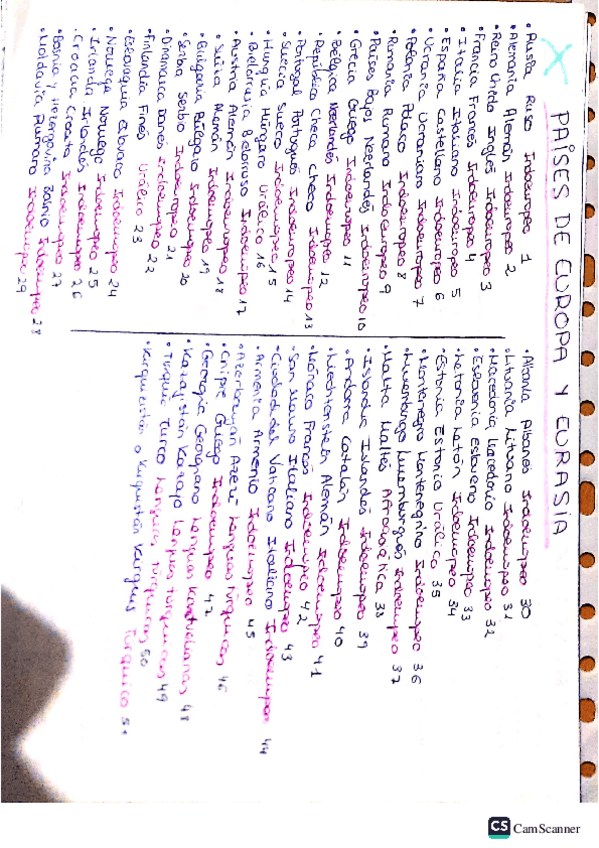 PAÍSES DE EUROPA Y EURASIA
• Rusia Ruso Indoeuropeo 1
• Alemania Alemán Indoeuropeo 2
• Reino Unido Inglés Indoeuropeo 3
• Francia Francés Indoeuropeo 4
• Italia Italiano Indoeuropeo 5
• España Castellano Indoeuropeo 6
• Ucrania Ucraniano Indoeuropeo 7
• Polonia Polaco Indoeuropeo 8
• Rumanía Rumano Indoeuropeo 9
• Países Bajos Neerlandés Indoeuropeo 10
• Grecia Griego Indoeuropeo 11
• Bélgica Neerlandés Indoeuropeo 12
• República Checa Checo Indoeuropeo 13
• Portugal Portugués Indoeuropeo 14
• Suecia Sueco Indoeuropeo 15
• Hungría Húngaro Urálico 16
• Bielorrusia Bieloruso Indoeuropeo 17
• Austria Alemán Indoeuropeo 18
• Suiza Alemán Indoeuropeo 19
• Bulgaria Búlgaro Indoeuropeo 20
• Serbia Serbio Indoeuropeo 21
• Dinamarca Danés Indoeuropeo 22
• Finlandia Finés Urálico 23
• Eslovaquia Eslovaco Indoeuropeo 24
• Noruega Noruego Indoeuropeo 25
• Irlanda Irlandés Indoeuropeo 26
• Croacia Croata Indoeuropeo 27
• Bosnia y Herzegovina Bosnio Indoeuropeo 28
• Moldavia Rumano Indoeuropeo 29
• Albania Albanés Indoeuropeo 30
• Lituania Lituano Indoeuropeo 31
• Macedonia Macedonio Indoeuropeo 32
• Eslovenia Esloveno Indoeuropeo 33
• Letonia Letón Indoeuropeo 34
• Estonia Estonio Urálico 35
• Montenegro Montenegrino Indoeuropeo 36
• Luxemburgo Luxemburgués Indoeuropeo 37
• Malta Maltés Afroasiática 38
• Islandia Islandés Indoeuropeo 39
• Andorra Catalán Indoeuropeo 40
• Liechtenstein Alemán Indoeuropeo 41
• Mónaco Francés Indoeuropeo 42
• San Marino Italiano Indoeuropeo 43
• Ciudad del Vaticano Italiano Indoeuropeo 44
• Armenia Armenio Indoeuropeo 45
• Azerbaiyán Azerí Lenguas túrquicas 46
• Chipre Griego Indoeuropeo 47
• Georgia Georgiano Lenguas kartvelianas 48
• Kazajistán Kazajo Lenguas turquicas 49
• Turquía Turco Lenguas túrquicas 50
• Kirguistán Kirguís Turquico 51
CS CamScanner